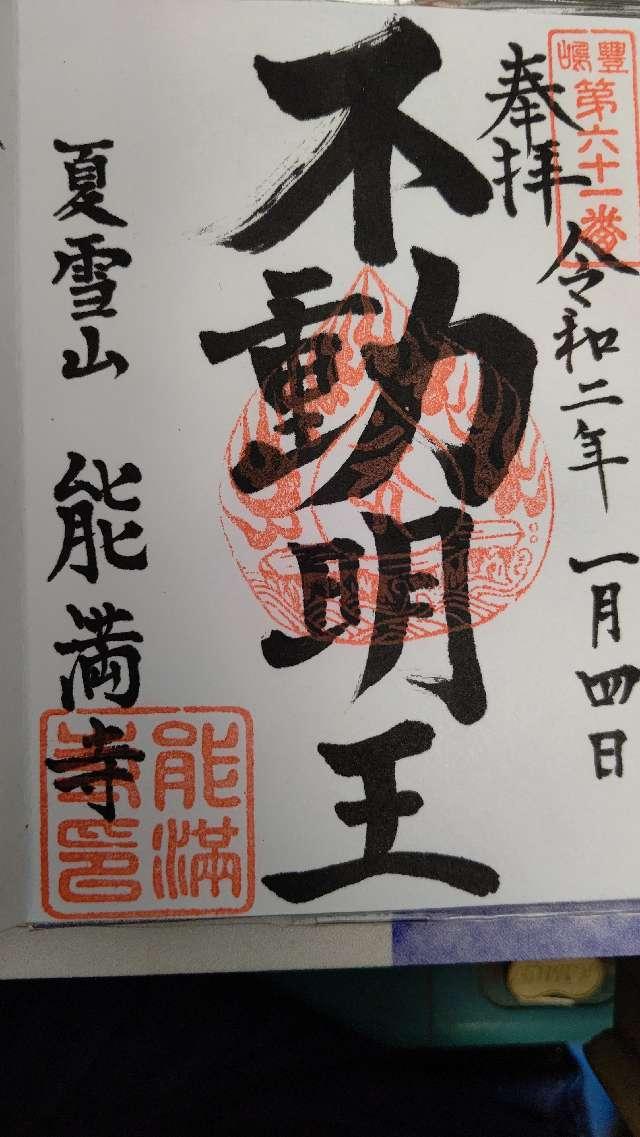 豐嶋
第六十一番
奉拝
令和二年一月四日
不動明王
夏雪山 能満寺
能滿寺印